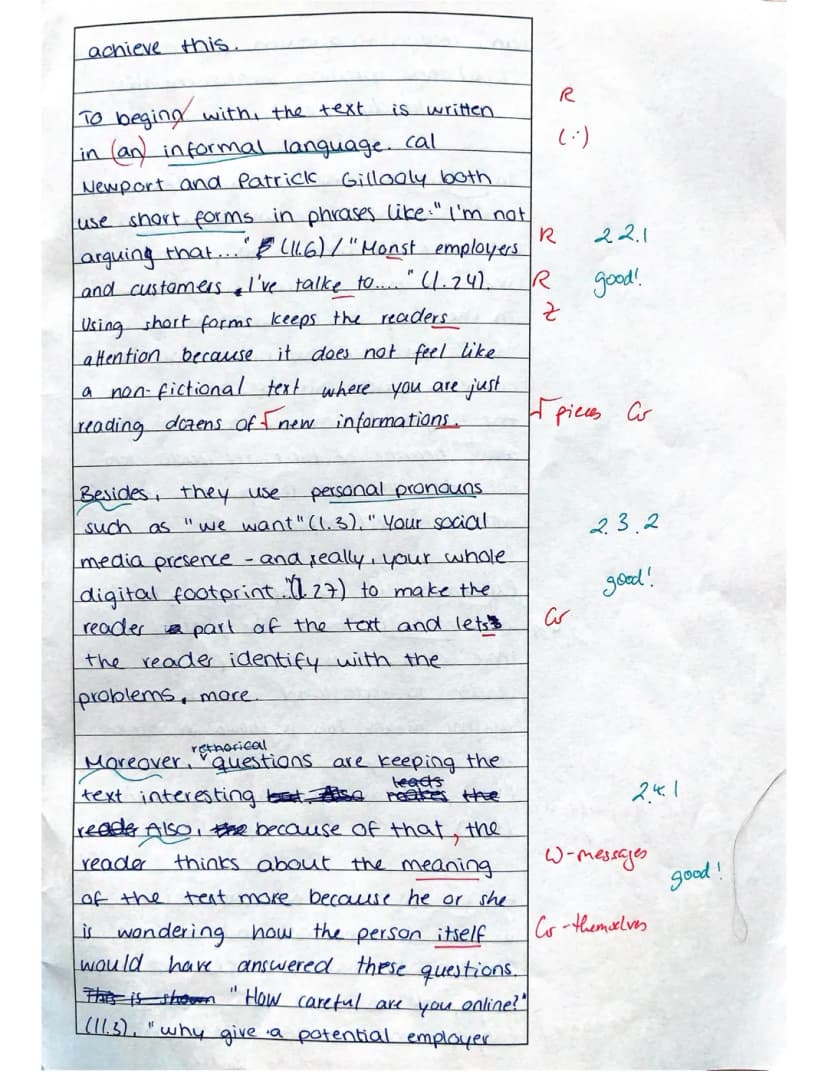 achieve this.
R
To beging with, the text is written
in (an) informal language. Cal
(∵)
Newport and Patrick Gillogly both
use short forms in phrases like: "I'm not
arguing that..." (ll.6) / "Monst employers
R 2.2.1
and customers, I've talke to...." (l.24).
R good!
Using short forms keeps the readers
Z
attention because it does not feel like
a non-fictional text where you are just
reading dozens of new informations.
pieces Gr
Besides, they use personal pronouns
such as "we want" (l.3). "Your social
2.3.2
media presence - and really, your whole
digital footprint." (l.27) to make the
good!
reader a part of the text and lets
Gr
the reader identify with the
problems, more.
rethorical
Moreover, questions are keeping the
leads
text interesting but. Also makes the
2.4.1
reade Also, the because of that, the
reader thinks about the meaning
W-messages
of the text more because he or she
good!
is wondering how the person itself
Gr-themselves
would have answered these questions.
This is shown "How careful are you online?"
(ll.3), "why give a potential employer